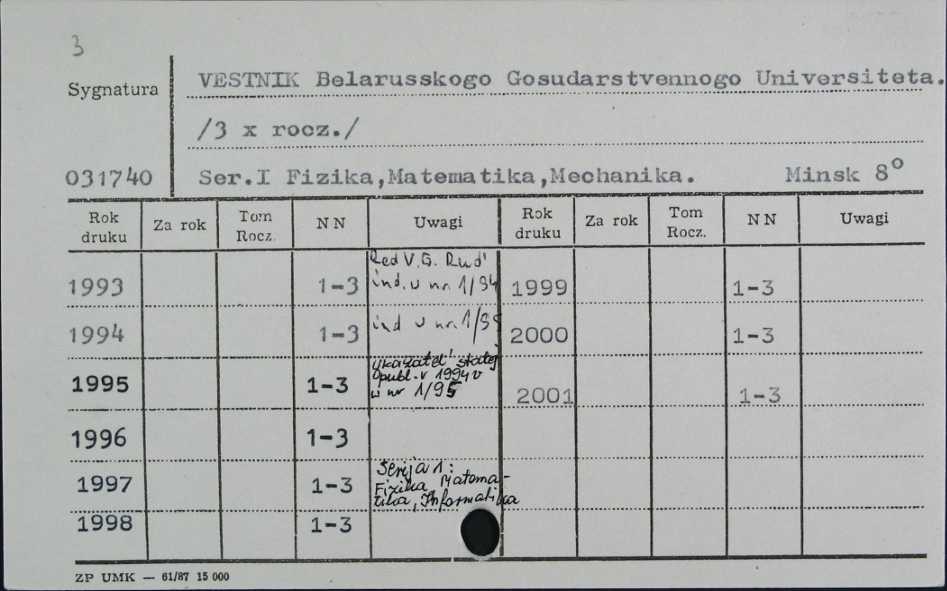 3
Sygnatura
VESTNIK Belarusskogo Gosudarstvennogo Universiteta.
/3 x rocz./
031740 Ser.I Fizika,Matematika,Mechanika. Minsk 8°
Rok druku Za rok Tom Rocz. NN Uwagi Rok druku Za rok Tom Rocz. NN Uwagi
Red V.G. Rud'
1993 1-3 ind. w nr. 1/94 1999 1-3
1994 1-3 ind w nr. 1/95 2000 1-3
ukazatel' statej
1995 1-3 opubl. v 1994 v
w nr 1/95 2001 1-3
1996 1-3
Serija 1:
1997 1-3 Fizika Matema-
tika, Informatika
1998 1-3
ZP UMK — 61/87 15 000